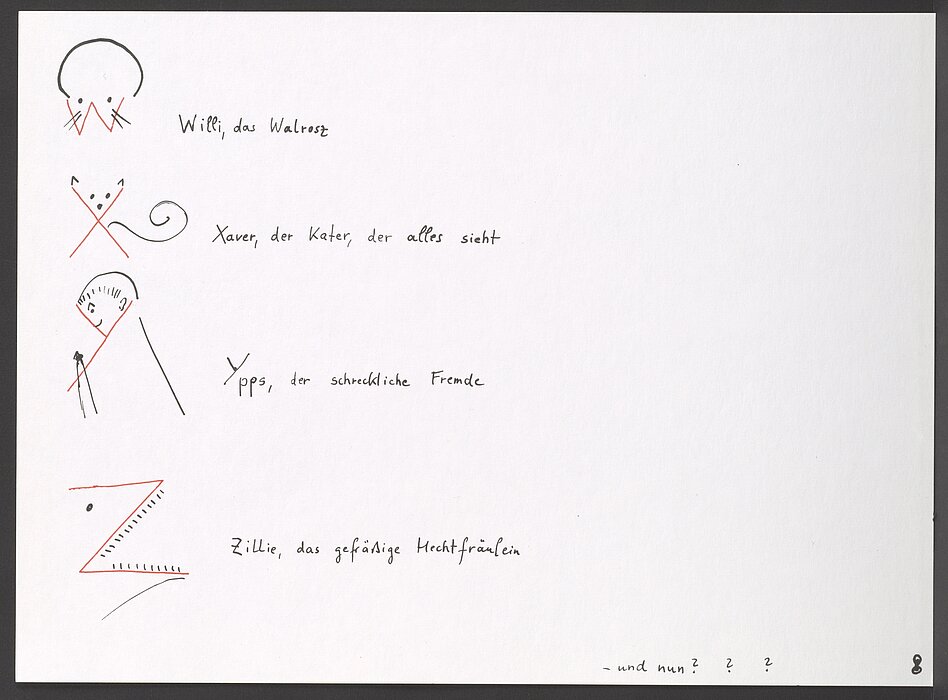 Willi, das Walrosz
Xaver, der Kater, der alles sieht
Ypps, der schreckliche Fremde
Zillie, das gefräßige Hechtfräulein
– und nun? ? ?
8